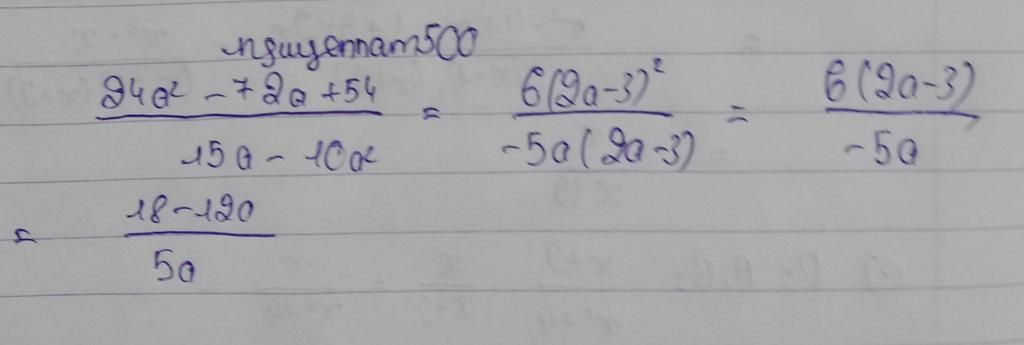 nguyennam500
24a² - 72a + 54 / 15a - 10a² = 6(2a-3)² / -5a(2a-3) = 6(2a-3) / -5a
= 18-12a / 5a